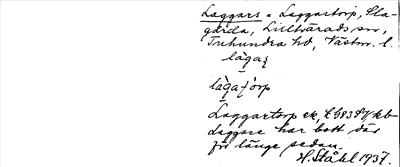 Laggars = Laggartorp, Sla-
gårda, Lillhärads sn,
Tuhundra hd, Västm. l.
làgaʒ
làgaʒòrp
Laggartorp ek,
Laggare har bott där
för länge sedan.
H. Ståhl 1937.